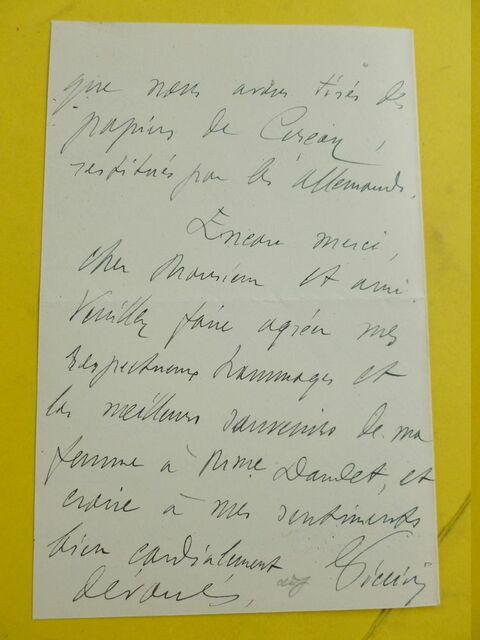 que nous avons tirés des
papiers de Cerçay,
restitués par les allemands.
Encore merci,
cher Monsieur et ami.
Veuillez faire agréer mes
respectueux hommages et
les meilleurs souvenirs de ma
femme à Mme Daudet, et
croire à mes sentiments
bien cordialement
dévoués,